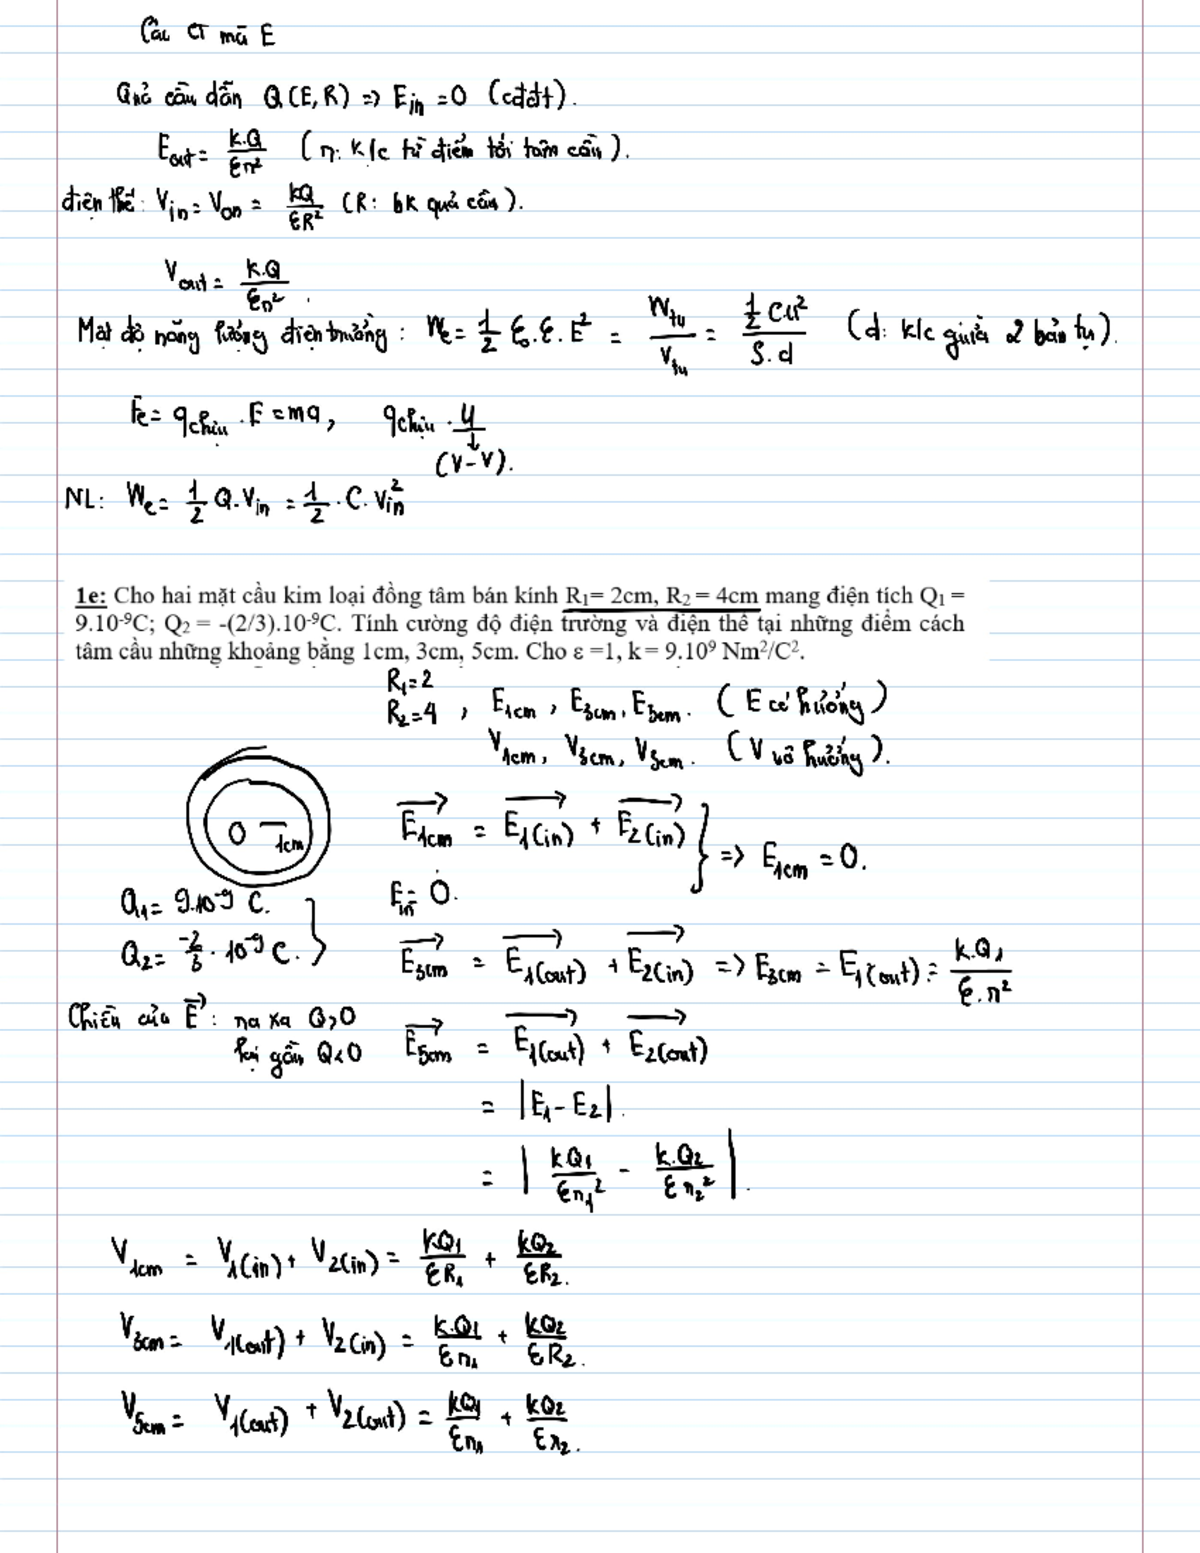 Các CT mã E
Quả cầu dẫn Q (E, R) => E in = 0 (cđđt).
E out = k.Q / εr² (r: k/c từ điểm tới tâm cầu).
điện thế: V in = V on = kQ / εR² (R: bk quả cầu).
V out = k.Q / εr².
Mật độ năng lượng điện trường: We = 1/2 ε₀.ε.E² = W tụ / V tụ = 1/2 CU² / S.d (d: k/c giữa 2 bản tụ).
Fe = q chịu . E = ma, q chịu . U
↓
(V-V).
NL: We = 1/2 Q.V in = 1/2 . C. V in²
1e: Cho hai mặt cầu kim loại đồng tâm bán kính R₁= 2cm, R₂ = 4cm mang điện tích Q₁ =
9.10⁻⁹C; Q₂ = -(2/3).10⁻⁹C. Tính cường độ điện trường và điện thế tại những điểm cách
tâm cầu những khoảng bằng 1cm, 3cm, 5cm. Cho ε =1, k = 9.10⁹ Nm²/C².
R₁=2
R₂=4 , E1cm , E3cm, E5cm. (E có hướng)
V1cm, V3cm, V5cm. (V vô hướng).
O 1cm
E1cm = E1(in) + E2(in) } => E1cm = 0.
E in = 0.
Q₁ = 9.10⁻⁹ C.
Q₂ = -2/3 . 10⁻⁹ C. }
E3cm = E1(out) + E2(in) => E3cm = E1(out) = k.Q₁ / ε.r²
Chiều của E: ra xa Q>0
lại gần Q<0
E5cm = E1(out) + E2(out)
= |E₁ - E₂|.
= | kQ₁ / εr₁² - k.Q₂ / εr₂² |.
V1cm = V1(in) + V2(in) = kQ₁ / εR₁ + kQ₂ / εR₂.
V3cm = V1(out) + V2(in) = k.Q₁ / εr₁ + kQ₂ / εR₂.
V5cm = V1(out) + V2(out) = kQ₁ / εr₁ + kQ₂ / εr₂.